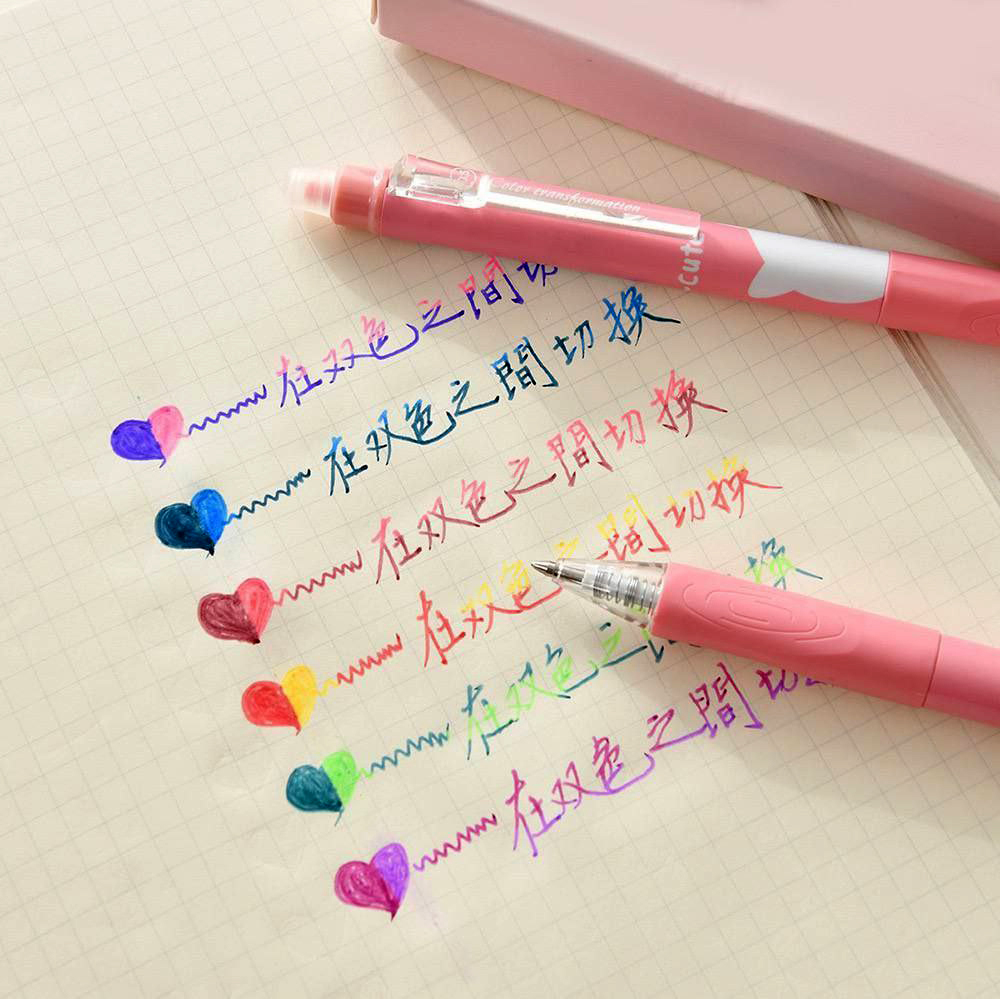 Color transformation
Cute
在双色之間切
在双色之間切換
在双色之間切換
在双色之間切換
在双色之間換
在双色之間切